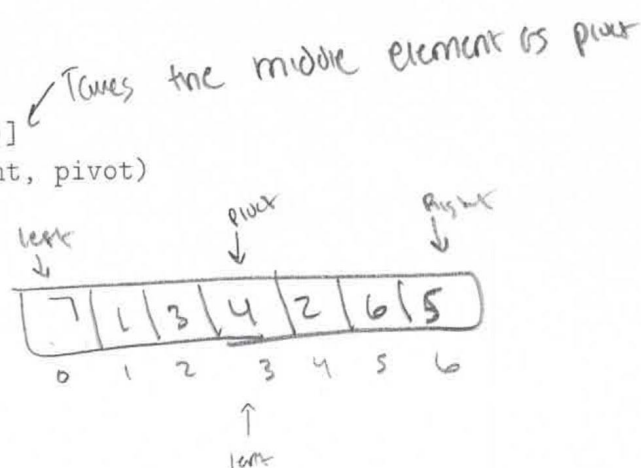 Takes the middle element as pivot
]
nt, pivot)
left pivot Right
7 1 3 4 2 6 5
0 1 2 3 4 5 6
left